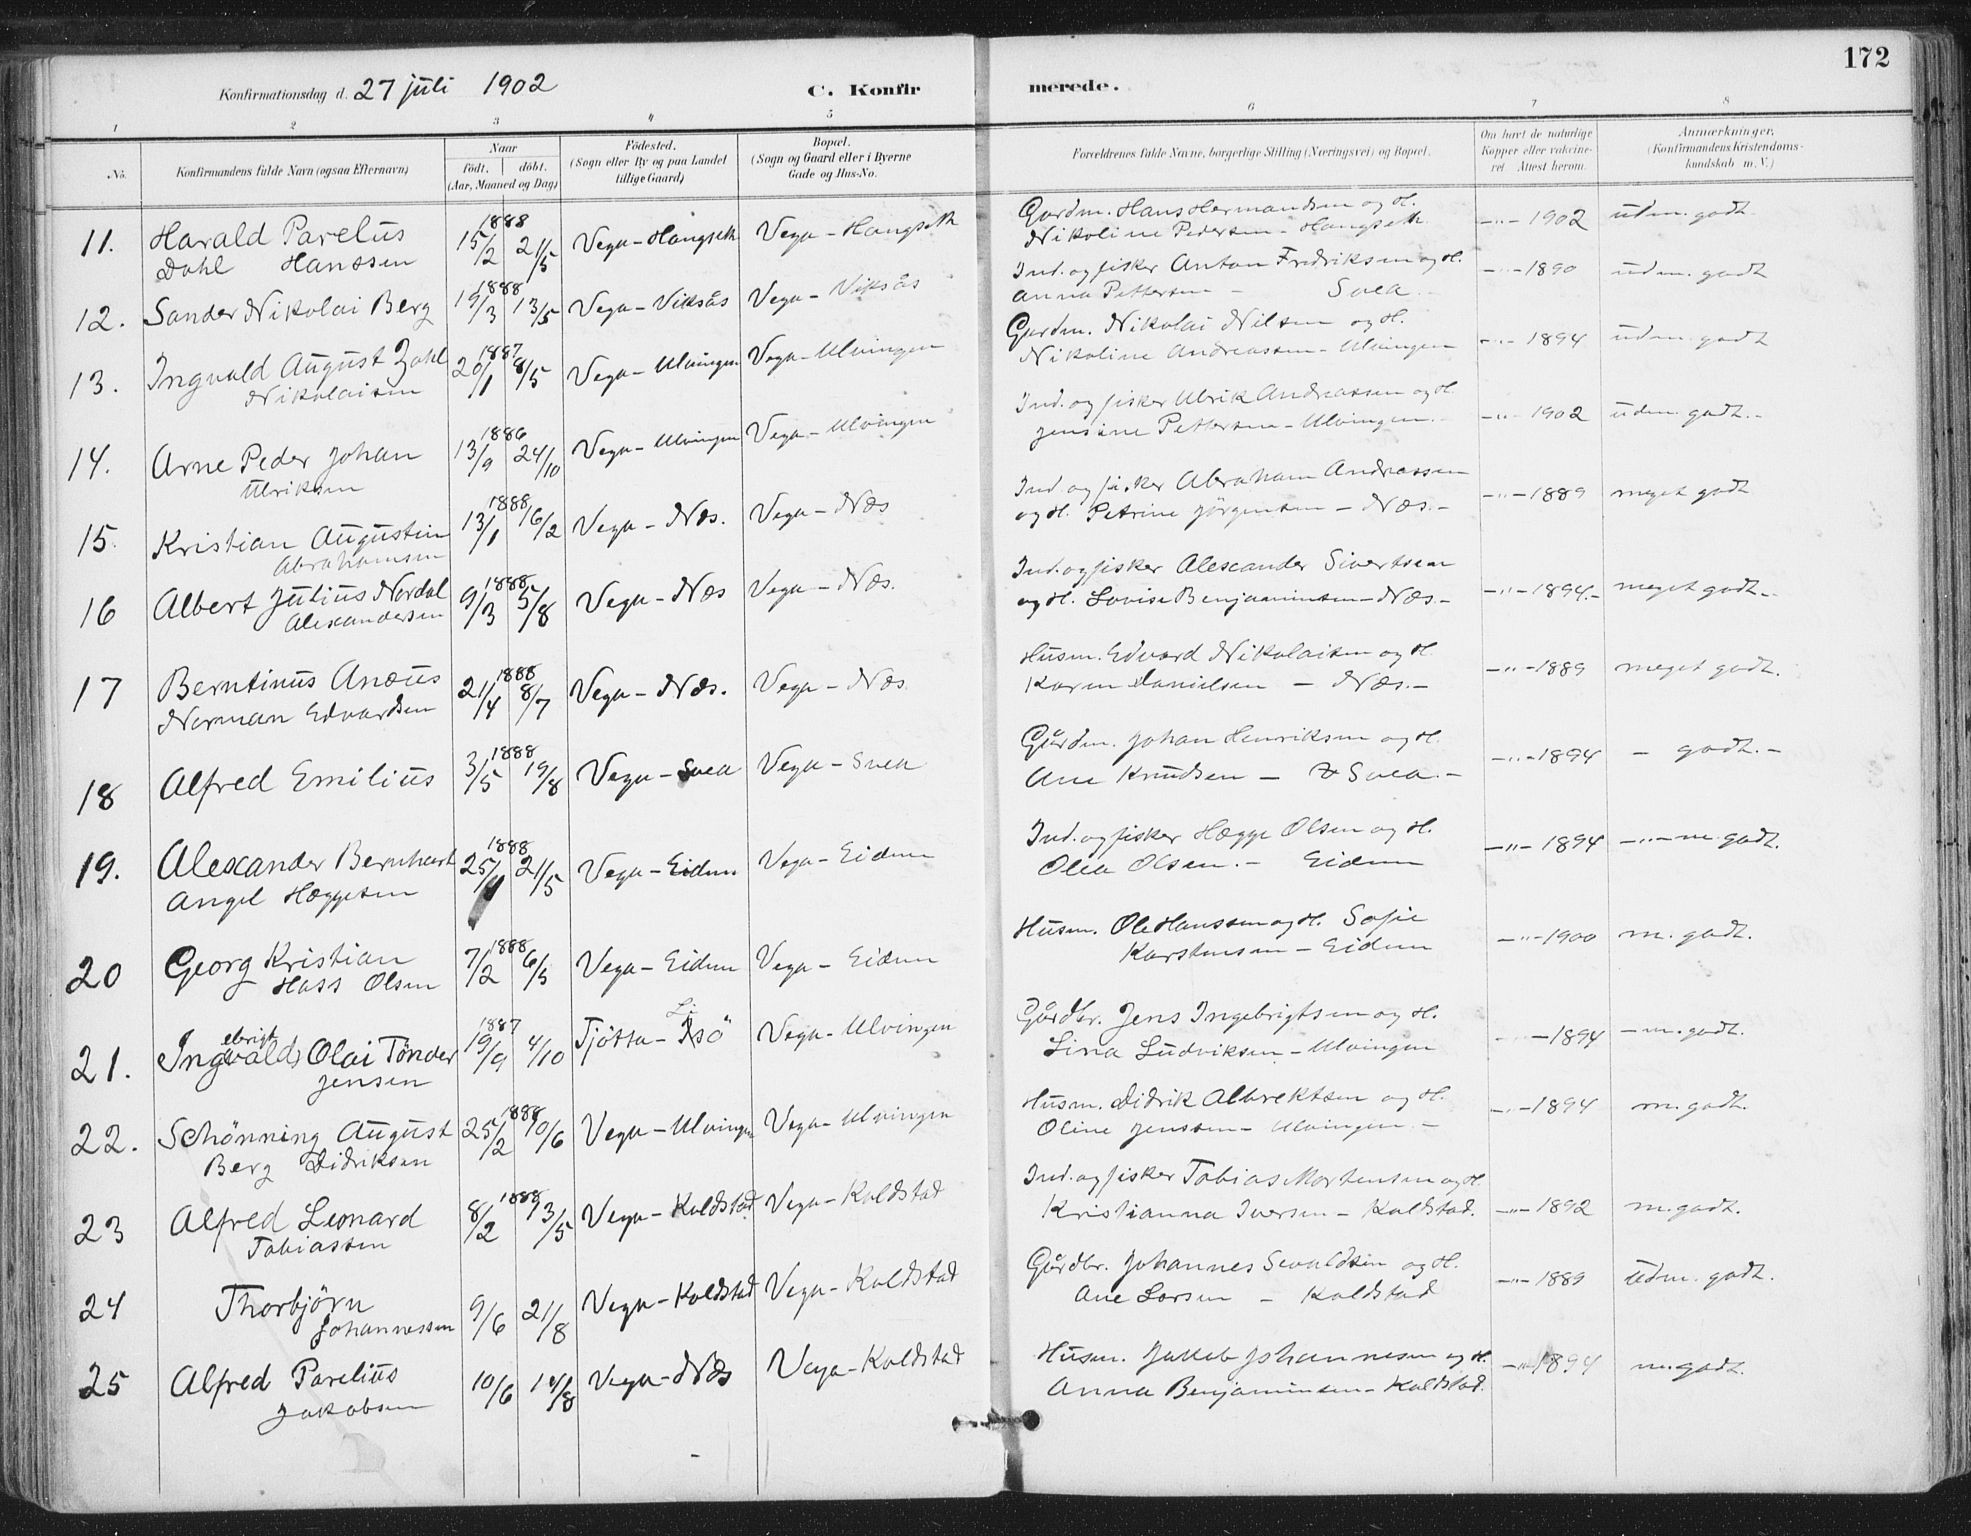 172
Konfirmationsdag d. 27 juli 1902 C. Konfirmerede.
1 2 3 4 5 6 7 8
No. Konfirmandens fulde Navn (ogsaa Efternavn) Naar födt. döbt. (Aar, Maaned og Dag) Födested. (Sogn eller By og paa Landet tillige Gaard) Bopæl. (Sogn og Gaard eller i Byerne Gade og Hus-No. Forældrenes fulde Navne, borgerlige Stilling (Næringsvei) og Bopæl. Om havt de naturlige Kopper eller vaksineret Attest herom. Anmærkninger. (Konfirmandens Kristendomskundskab m. V.)
11. Harald Parelius 1888 15/2 21/5 Vega - Hongseth Vega - Hongseth Gardm. Hans Hermandsen og H. -"- 1902 udm. godt
Dahl Hanssen Nikoline Pedersen - Hongseth
12. Sander Nikolai Berg 1888 19/3 13/5 Vega - Viksås Vega - Viksås Ind. og fisker Anton Fredriksen og H. -"- 1890 udm. godt
Anna Pettersen - Svea.
13. Ingvald August Zahl 1887 20/1 8/5 Vega - Ulvingen Vega - Ulvingen Gardm. Nikolai Nilsen og H. -"- 1894 udm. godt
Nikolaisen Nikoline Andreassen - Ulvingen
14. Arne Peder Johan 1886 13/9 24/10 Vega - Ulvingen Vega - Ulvingen Ind. og fisker Ulrik Andreassen og H. -"- 1902 udm. godt.-
Ulriksen Jensine Pettersen - Ulvingen.-
15. Kristian Augustin 1888 13/1 16/2 Vega - Næs. Vega - Næs Ind. og fisker Abraham Andreassen -"- 1889 meget godt
Abrahamsen og H. Petrine Jørgensen - Næs.-
16 Albert Julius Nordal 1888 9/3 5/8 Vega - Næs Vega - Næs. Ind. og fisker Alexander Sivertsen -"- 1894.- meget godt.-
Alexandersen og H. Lovise Benjaminsen - Næs.-
17 Berntinus Anæus 1888 21/4 8/7 Vega - Næs. Vega - Næs Husm. Edvard Nikolaisen og H -"- 1889 meget godt.
Norman Edvardsen Karen Danielsen - Næs.-
18 Alfred Emilius 1888 3/5 19/8 Vega - Svea Vega - Svea Gårdm. Johan Henriksen og H. -"- 1894 - godt.-
Ane Knudsen - Svea.-
19. Alexander Bernhart 1888 25/ 21/5 Vega - Eidem Vega - Eidem Ind. og fisker Hægge Olsen og H. -"- 1894 -"- m. godt.
Angel Hæggesen Olea Olsen.- Eidem
20 Georg Kristian 1888 7/2 6/5 Vega - Eidem Vega - Eidem Husm. Ole Hanssen og H. Sofie -"- 1900 m. godt.
Hass Olsen Karstensen - Eidem
21. Ingvald ebrigt Olai Tønder 1887 19/9 4/10 Tjötta - Lisö Vega - Ulvingen Gårdbr. Jens Ingebrigtsen og H. -"- 1894 - m. godt.
Jensen Lina Ludviksen - Ulvingen
22. Schönning August 1888 25/2 10/6 Vega - Ulvingen Vega - Ulvingen Husm. Didrik Albrektsen og H. -"- 1894 m. godt.
Berg Didriksen Oline Jenssen - Ulvingen.-
23 Alfred Leonard 1888 8/2 13/5 Vega - Koldstad Vega - Koldstad Ind. og fisker Tobias Mortensen og H. -"- 1892 m. godt.
Tobiassen Kristianna Iversen - Koldstad.
24 Thorbjörn 9/6 21/8 Vega - Koldstad Vega - Koldstad Gårdbr. Johannes Sevaldsen og H. -"- 1889 udm. godt.
Johannessen Ane Larsen - Koldstad
25 Alfred Parelius 10/6 /8 Vega - Næs Vega - Koldstad Husm. Jakob Johannesen og H. -"- 1894 m. godt.
Jakobsen Anna Benjaminsen - Koldstad.